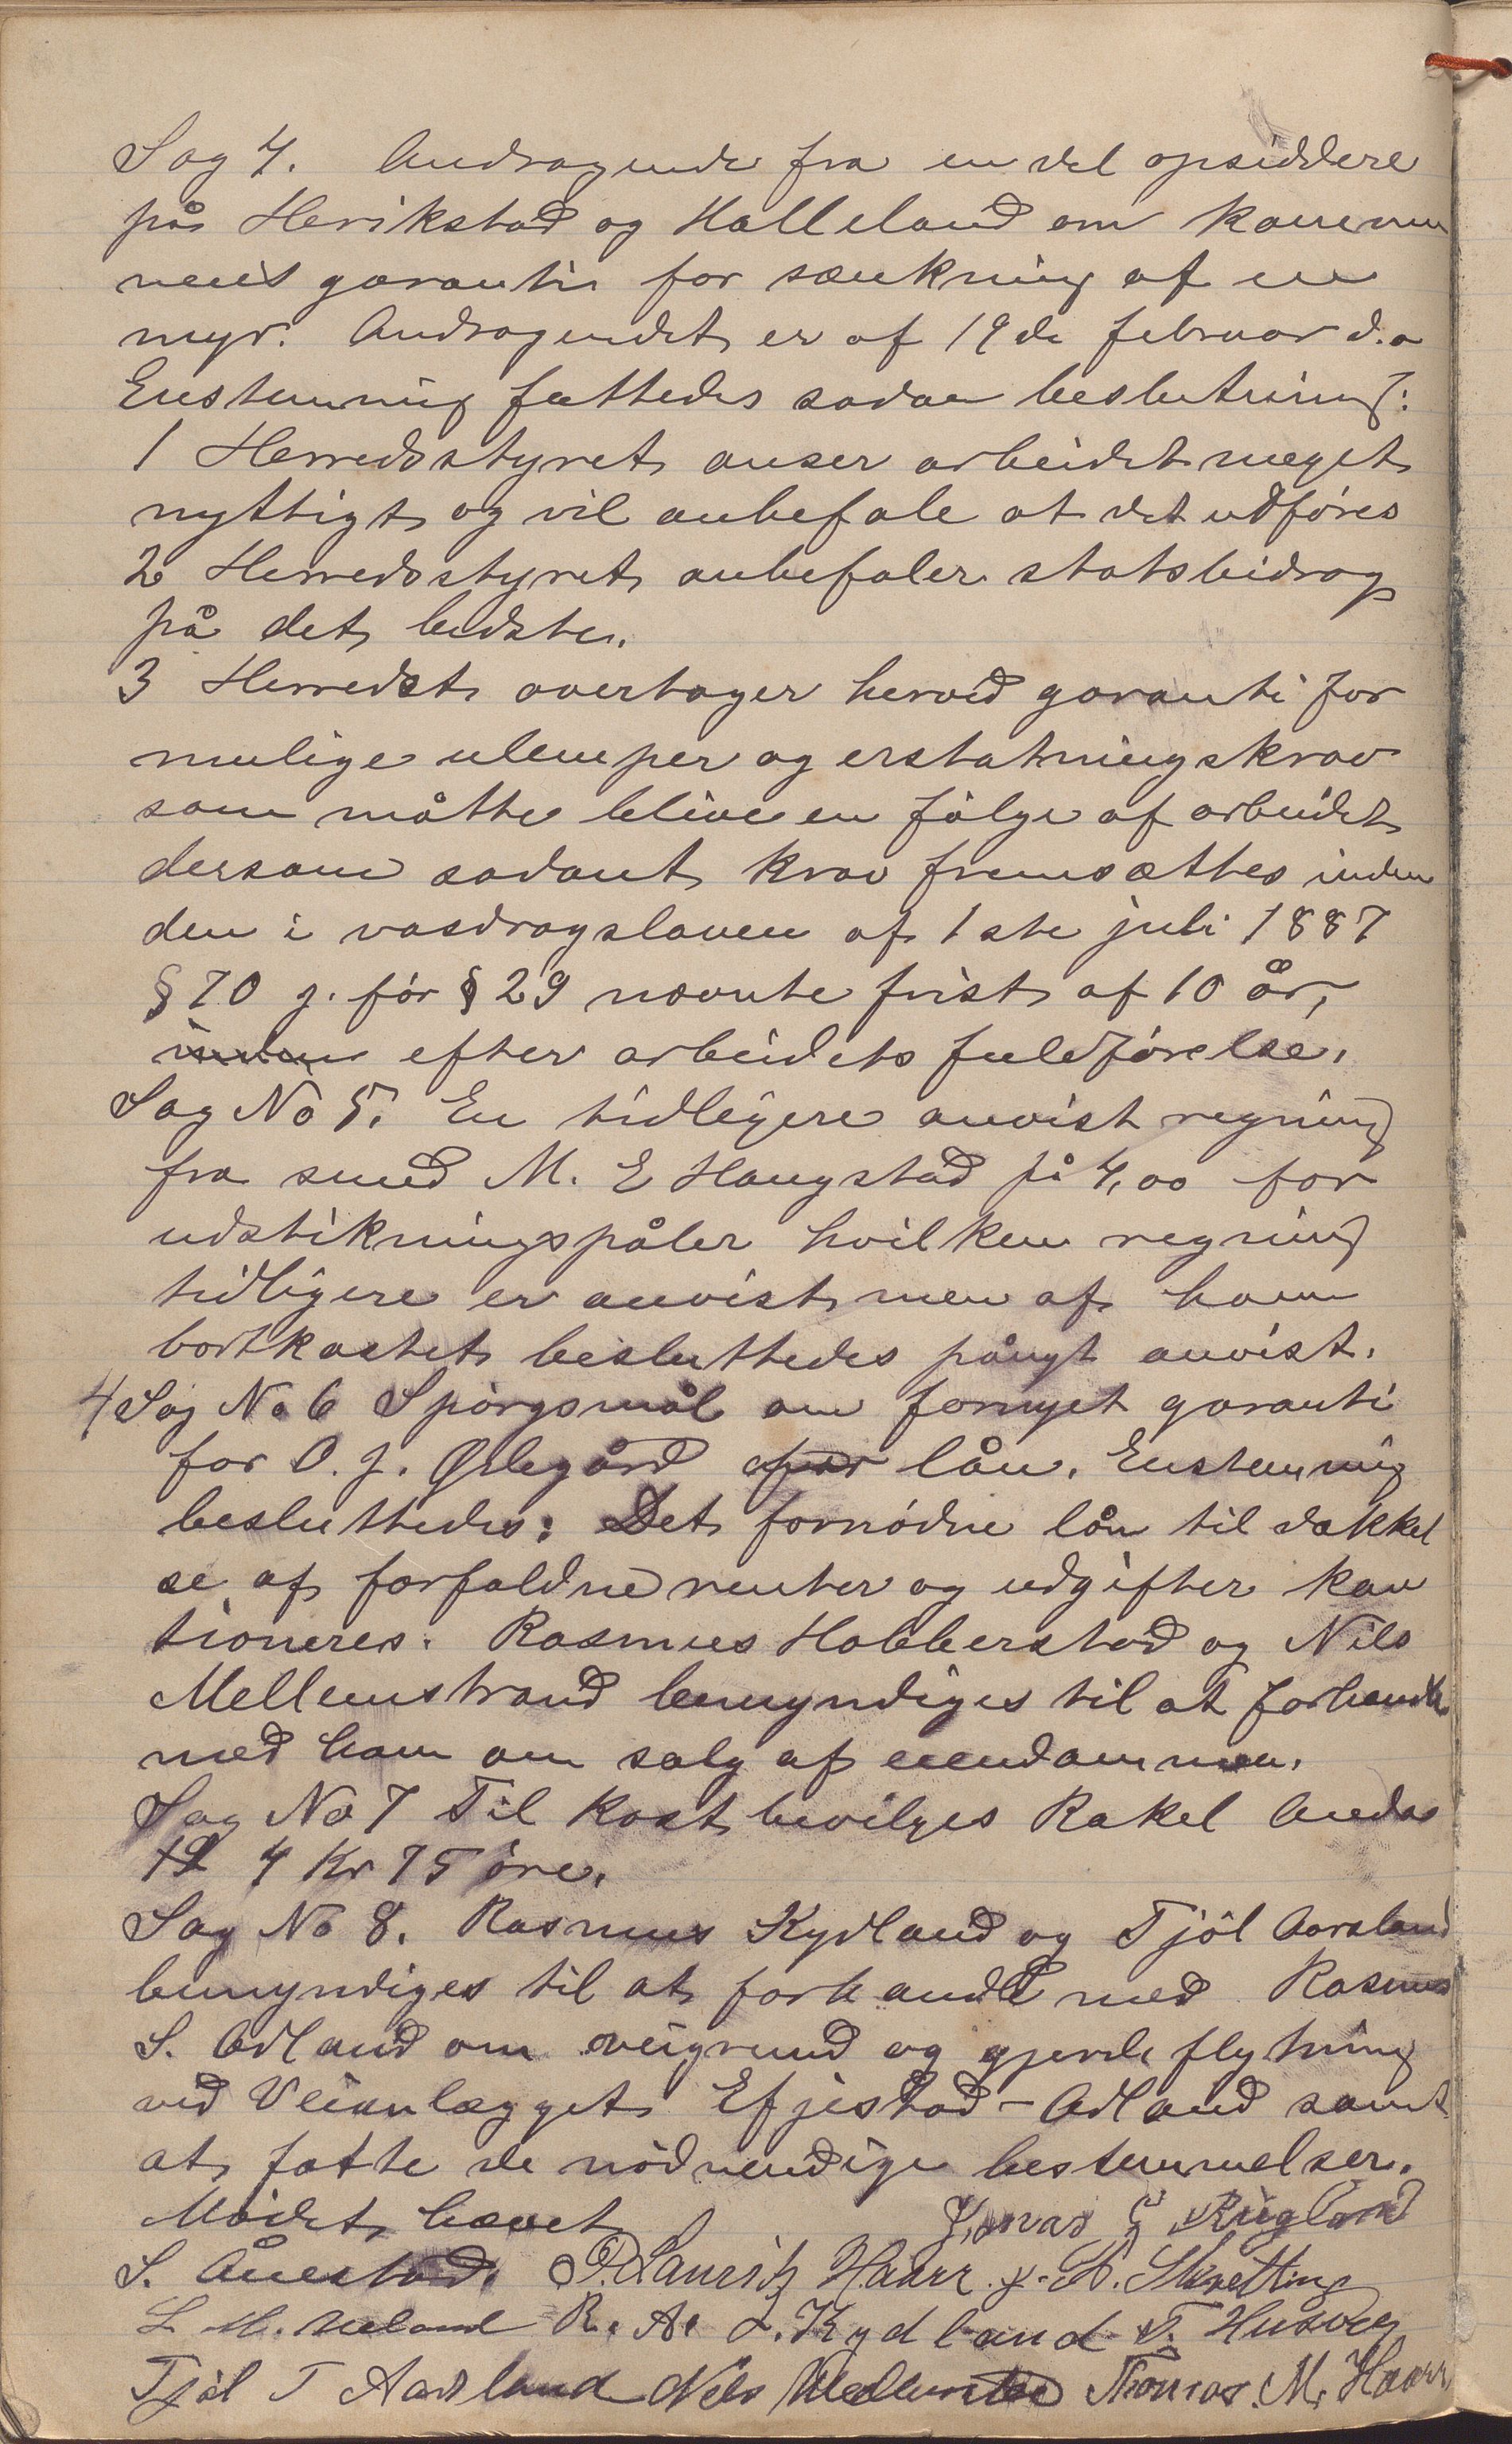 Sag 4. Andragende fra en del opsiddere
på Herikstad og Halleland om kommu
nens garanti for sænkning af en
myr. Andragendet er af 19de februar d.a
Enstemmig fattedes sadan beslutning:
1 Herredsstyret anser arbeidet meget
nyttigt og vil anbefale at det udføres
2 Herredsstyret anbefaler statsbidrag
på det bedste.
3 Herredet overtager herved garanti for
mulige ulemper og erstatningskrav
som måtte blive en følge af arbeidet
dersom sadant krav fremsættes inden
den i vasdragsloven af 1ste juli 1887
§ 70 j. før § 29 nævnte frist af 10 år,
inden efter arbeidets fuldførelse.
Sag No 5. En tidligere anvist regning
fra smed M. E Haugstad på 4,00 for
udstikningspåler hvilken regning
tidligere er anvist men af ham
bortkastet besluttedes pånyt anvist.
4 Sag No 6 Spørgsmål om fornyet garanti
for O. J. Ødegård lån. Enstemmig
besluttedes: Det fornødne lån til dækkel
se af forfaldne renter og udgifter kau
tioneres. Rasmus Hobberstad og Nils
Mellemstrand bemyndiges til at forhandle
med ham om salg af eiendommen.
Sag No 7 Til kost bevilges Rakel Andas
12 4 Kr 75 øre.
Sag No 8. Rasmus Kydland og Tjøl Aarsland
bemyndiges til at forhandle med Rasmus
S. Adland om veigrund og gjerde flytning
ved Veianlægget Efjestad - Adland samt
at fatte de nødvendige bestemmelser.
Mødet hævet Jonas E Rugland
S. Ånestad. P. Lauritz Haarr J. A. Skretting
L. M. Ueland R. A. L. Kydland T. Husveg
Tjøl T Aarsland Nils Mellemstrand Thomas. M. Haarr